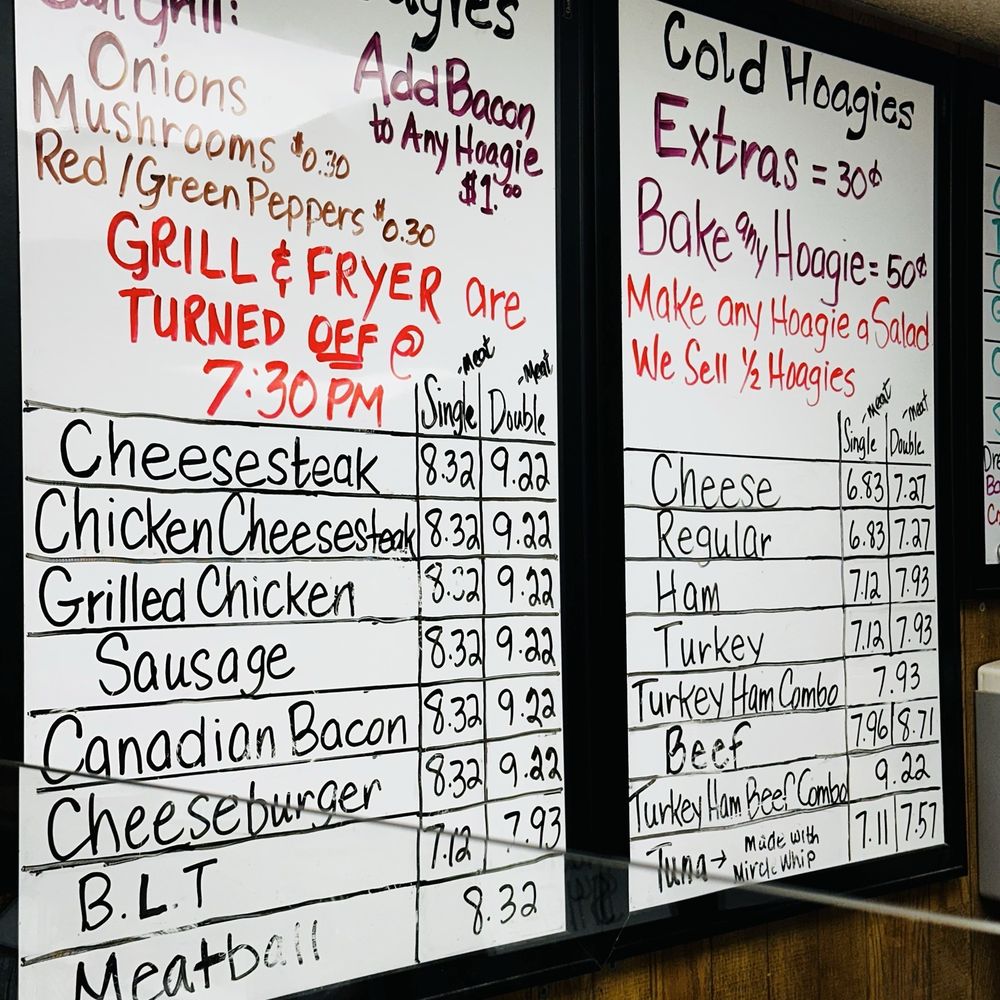 Grill:
Onions
Mushrooms $0.30
Red/Green Peppers $0.30
Add Bacon
to Any Hoagie
$1.00
GRILL & FRYER are
TURNED OFF @
7:30 PM
Single -meat Double -Meat
Cheesesteak 8.32 9.22
Chicken Cheesesteak 8.32 9.22
Grilled Chicken 8.32 9.22
Sausage 8.32 9.22
Canadian Bacon 8.32 9.22
Cheeseburger 8.32 9.22
B.L.T 7.12 7.93
Meatball 8.32
Cold Hoagies
Extras = 30¢
Bake any Hoagie = 50¢
Make any Hoagie a Salad
We Sell ½ Hoagies
Single -meat Double -meat
Cheese 6.83 7.27
Regular 6.83 7.27
Ham 7.12 7.93
Turkey 7.12 7.93
Turkey Ham Combo 7.93
Beef 7.96 8.71
Turkey Ham Beef Combo 9.22
Tuna → Made with Mircle Whip 7.11 7.57